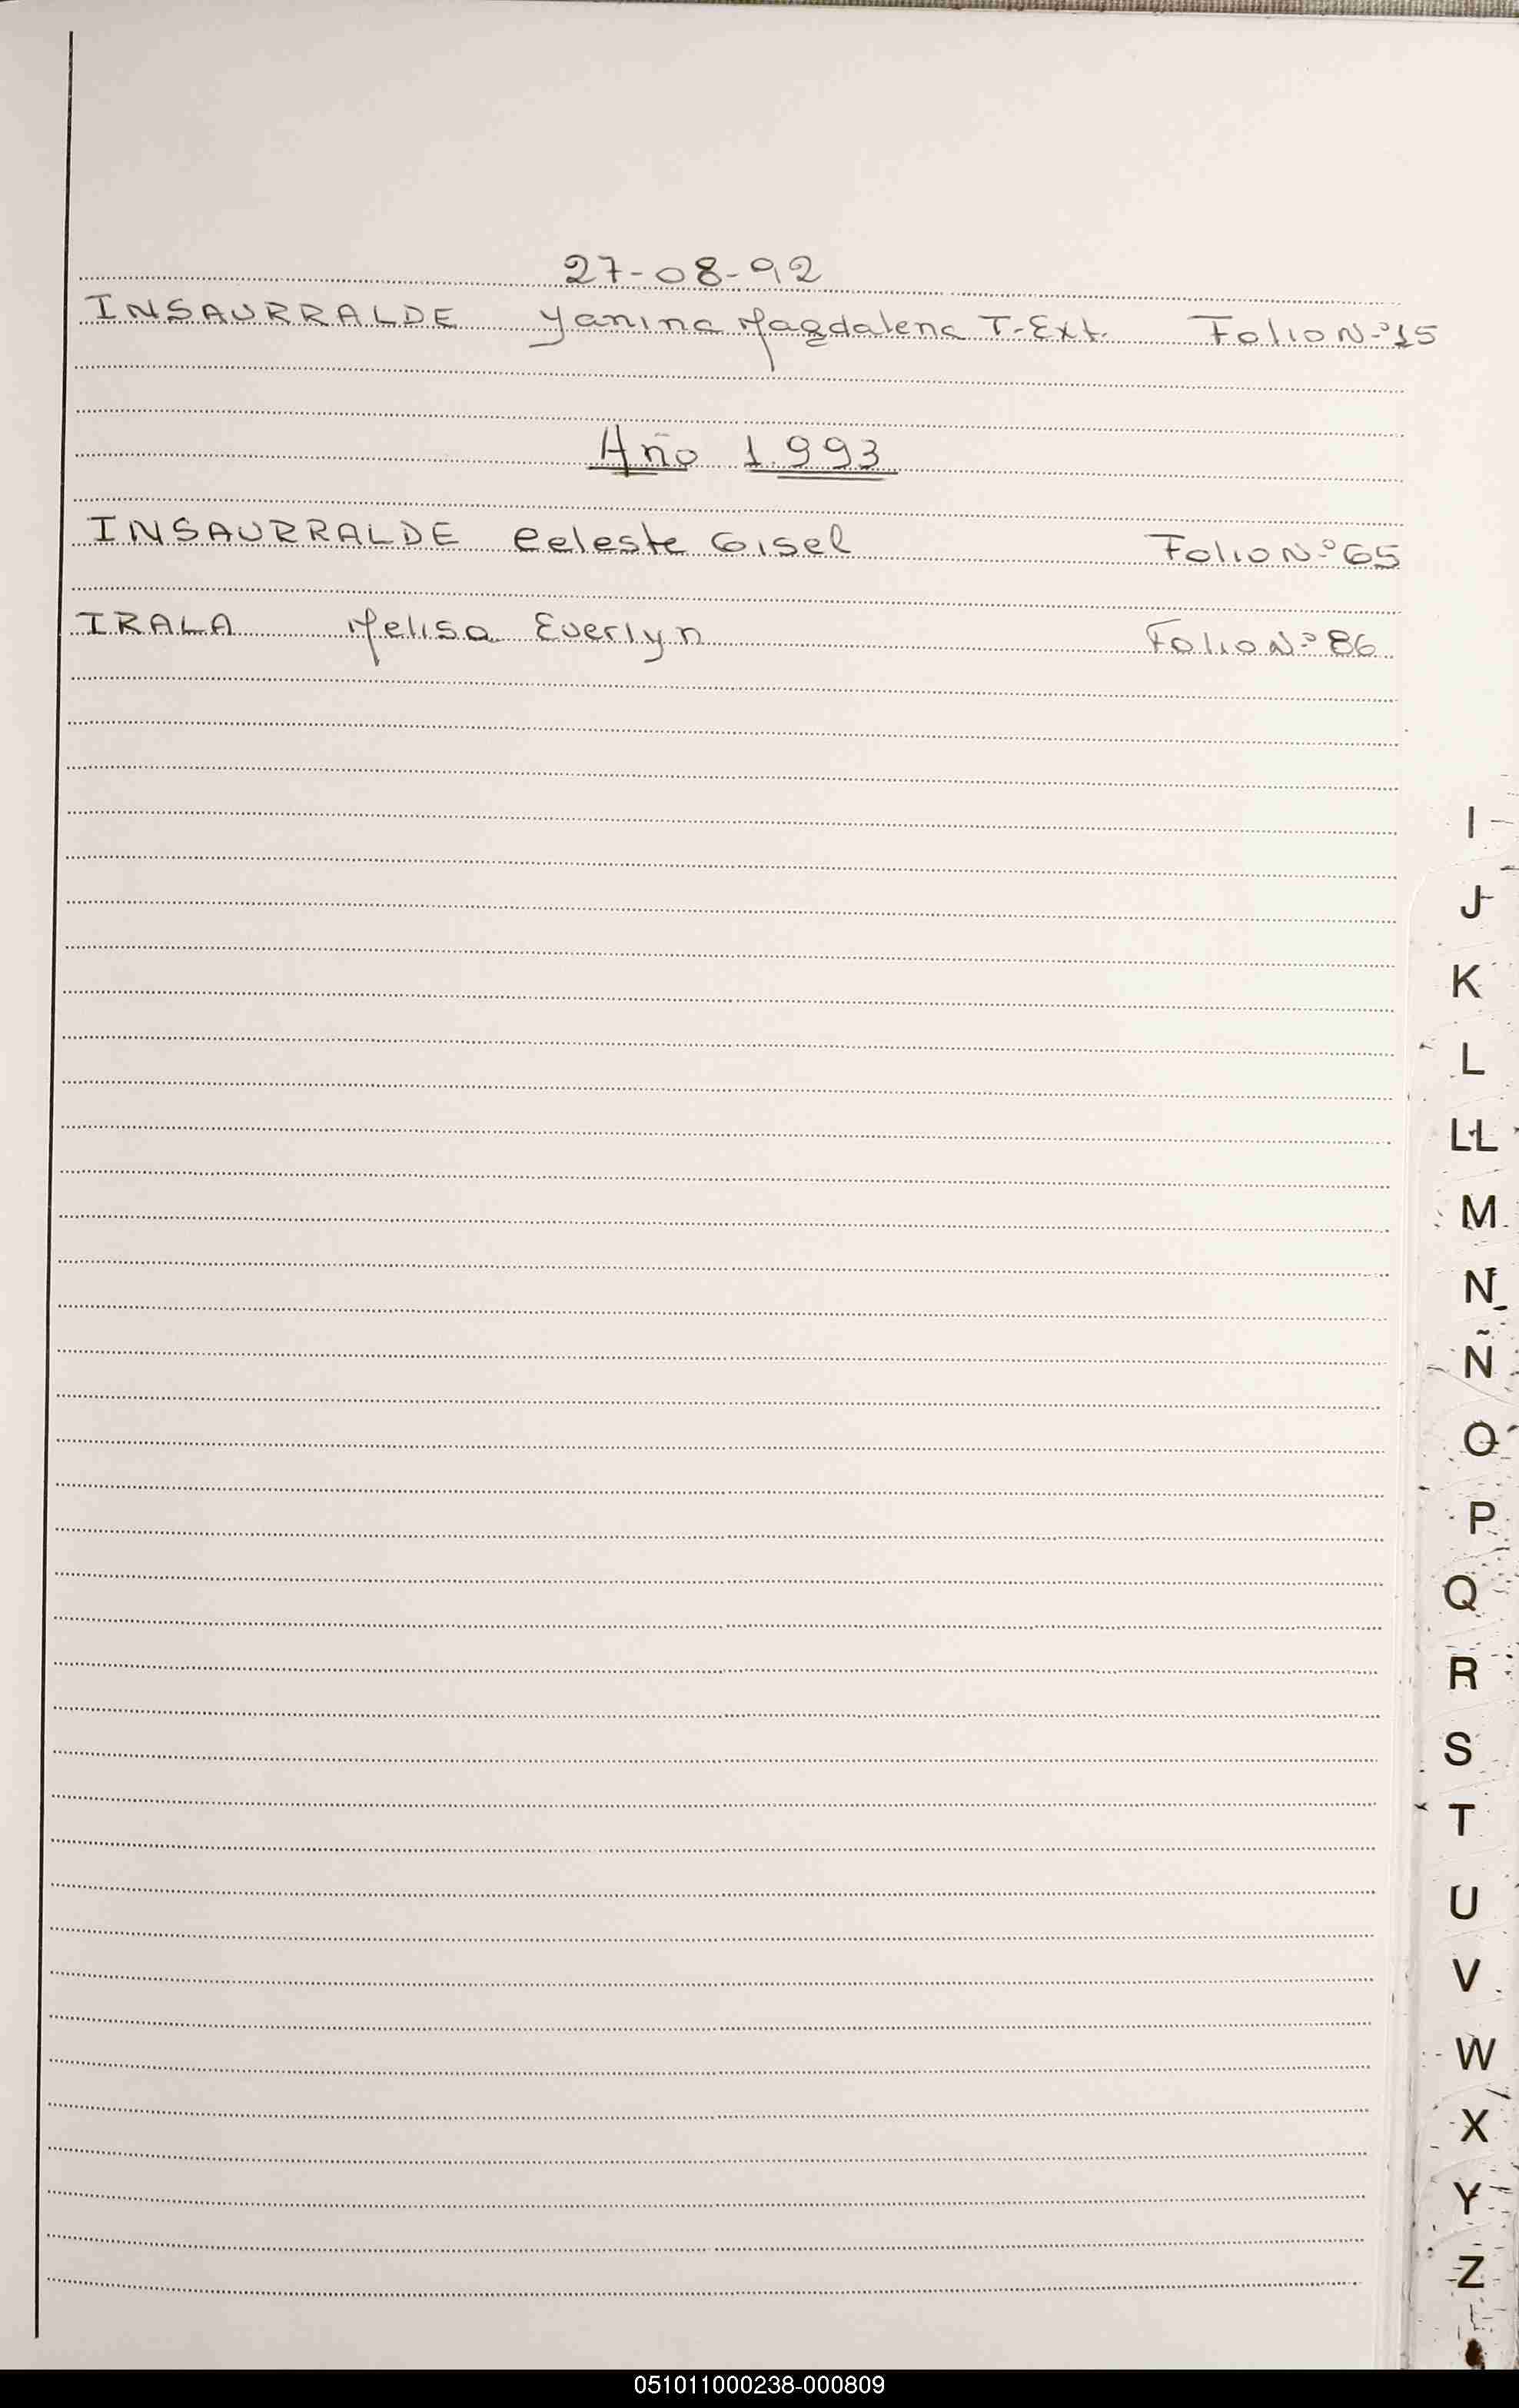 27-08-92
INSAURRALDE Yanina Magdalena T-Ext. Folio Nº 15
Año 1993
INSAURRALDE Celeste Gisel Folio Nº 65
IRALA Melisa Everlyn Folio Nº 86
I
J
K
L
LL
M
N
Ñ
O
P
Q
R
S
T
U
V
W
X
Y
Z
051011000238-000809